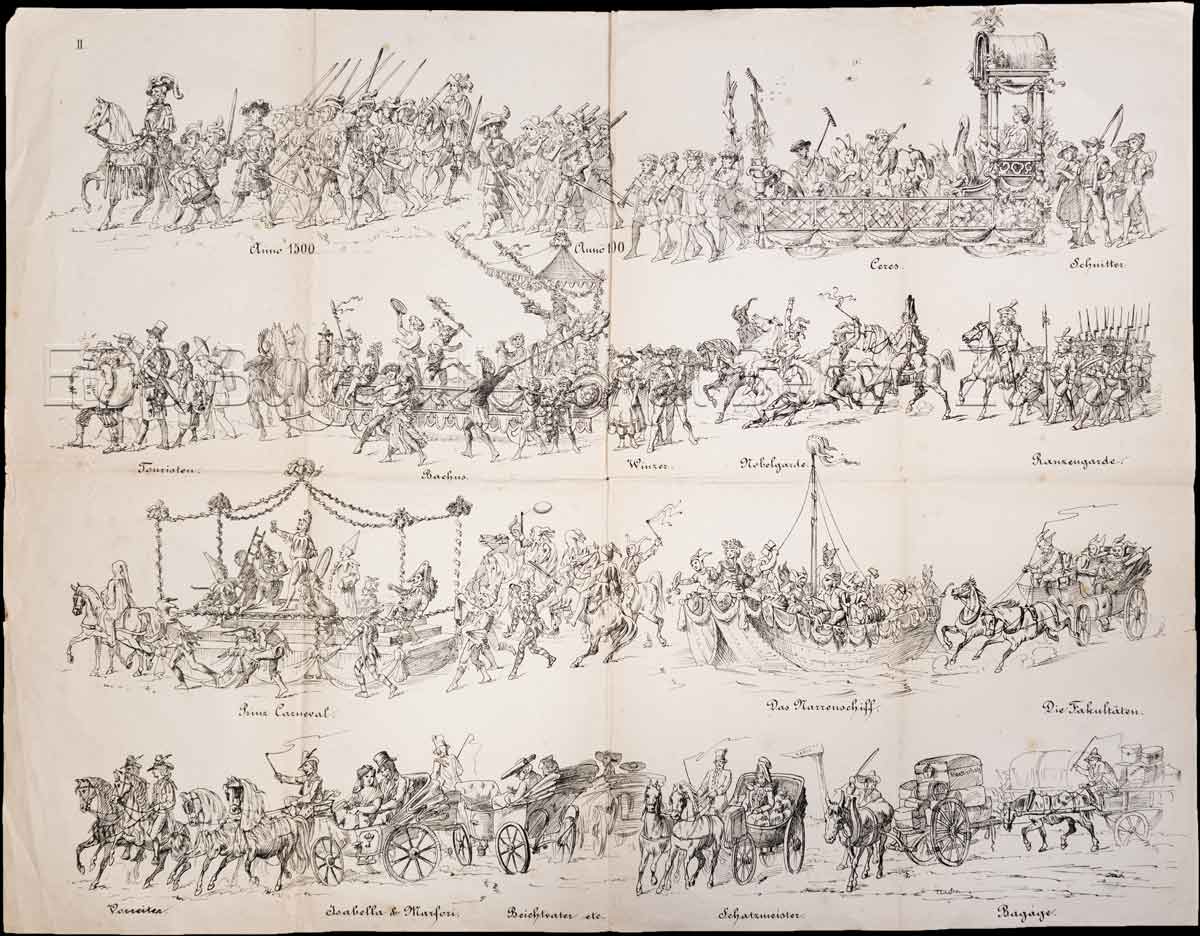 II.
Anno 1500.
Anno 1
Ceres.
Schnitter.
Touristen.
Bachus.
Winzer.
Nobelgarde.
Ranzengarde.
Prinz Carneval.
Das Narrenschiff.
Die Fakultäten.
Vorreiter.
Isabella & Marfori.
Beichtvater etc.
Schatzmeister.
Bagage.